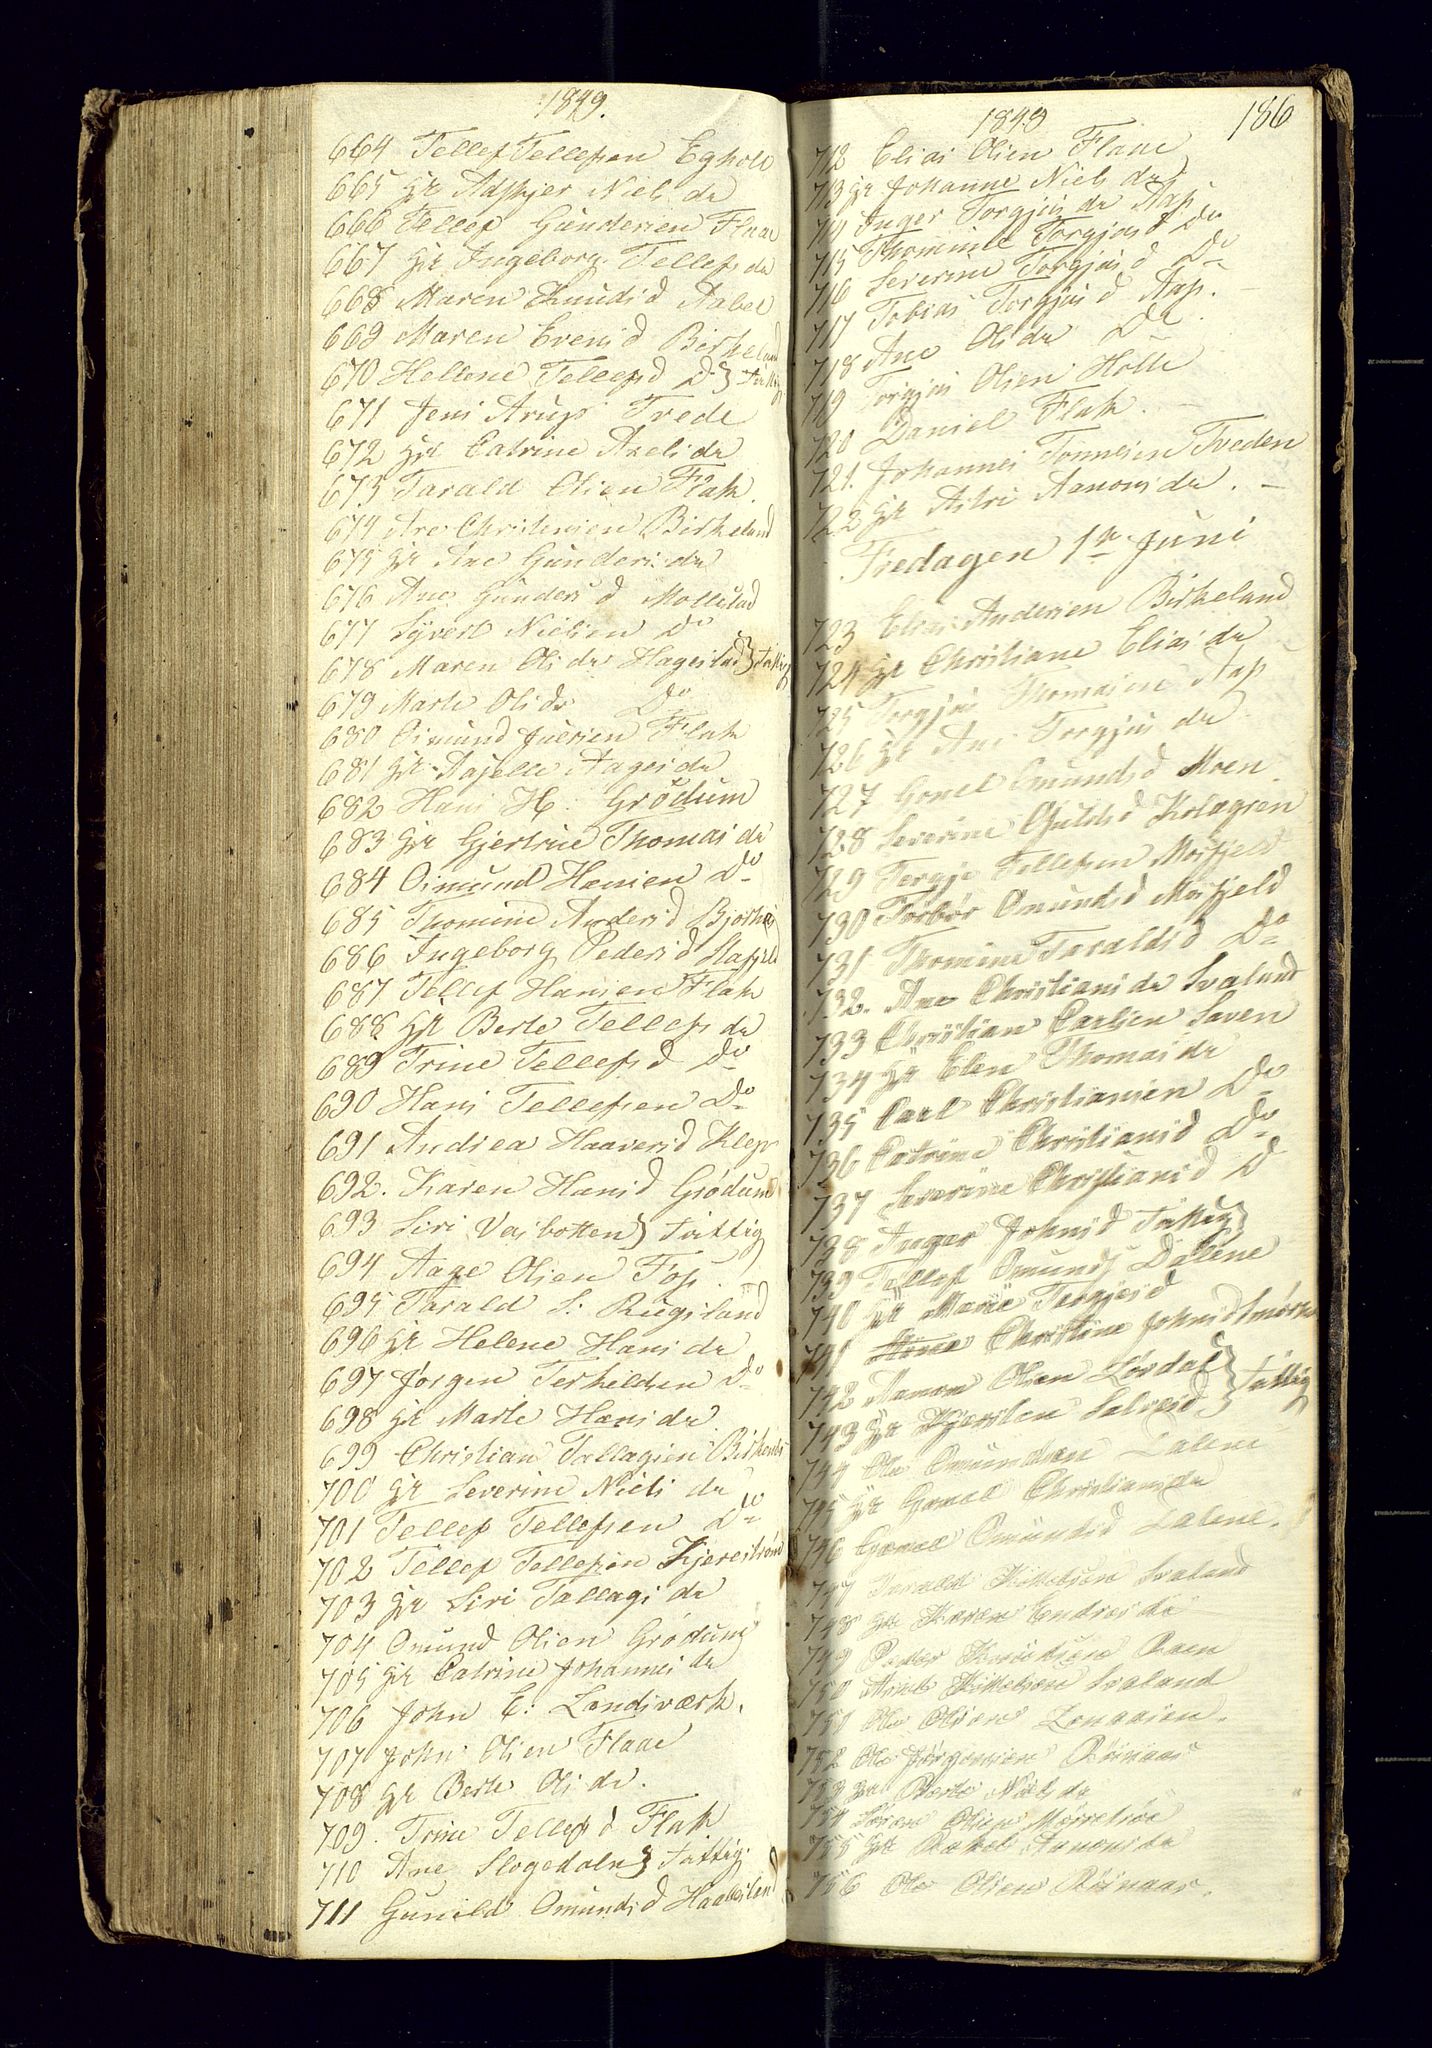 1849.
664 Tellef Tellefsen Eghole
665 gt Adskjer Niels da
666 Tellef Gundersen Flaae
667 gt Ingeborg Tellefs da
668 Maren Knuds d Aabel
669 Maren Evens d Birkeland
670 Hellene Tellefs d Do } Fattig
671 Jens Arups Trede
672 gt Catrine Axels da
673 Tarald Olsen Flak.
674 Are Christensen Birkeland
675 gt Ane Gunders da
676 Ane Gunders d Mollestad
677 Syvert Nielsen Do
678 Maren Ols da Hagestad } Fattig
679 Marte Ols da Do
680 Osmund Juersen Flak
681 gt Aaselle Aages da
682 Hans H: Grödum
683 gt Gjertrue Thomas da
684 Osmund Hansen Do
685 Thomine Anders d
686 Ingeborg Peders d
687 Tellef Hansen Flak
688 gt Berte Tellefs da
689 Trine Tellefs d Do
690 Hans Tellefsen Do
691 Andrea Haavers d Klep
692. Karen Hans d Grödum
693 Siri Vasbotten } Fattig
694 Aage Olsen Fos.
695 Tarald S: Rugsland
696 gt Helene Hans da
697 Jörgen Terkeldsen Do
698 gt Marte Hans da
699 Christian Tallagsen
700 gt Severine Niels da
701 Tellef Tellefsen Do
702 Tellef Tellefsen Kjerestrand
703 gt Siri Tallags da
704 Omund Olsen Grödum
705 gt Catrine Johannes da
706 John E: Landsværk.
707 John Olsen Flaae
708 gt Berte Ols da.
709. Trine Tellefs d Flak
710 Ane Slogedalen } Fattig
711 Gunild Omunds d
1849 186
712 Elias Olsen Flaae
713 gt Johanne Niels da
714 Inger Torgjus da Aas
715 Thomine Torgjus d Do
716 Severine Torgjus d Do
717 Tobias Torgjus d Aas.
718 Ane Ols da Do
719 Torgjus Olsen Holte
720 Daniel Flak.
721. Johannes Tönnesen Tveden
722 gt Astri Aanons da.
Fredagen 1te Juni
723 Elias Andersen Birkeland
724 gt Christiane Elias da
725 Torgjus Thomasen Aas
726 gt Ane Torgjus da
727 Gonel Omunds d Moen.
728 Severine d
729 Tergje Tellefsen Mosfjeld
730 Torbör Omunds d Mosfjeld
731 Thomine Taralds d Do
732. Ane Christians da Svaland
733 Christian Carlsen Saven
734 gt Elen Thomas da
735 Carl Christiansen Do
736 Catrine Christians d Do
737 Severine Christians d D
738 Inger Johns d Fattig }
739 Tellef Omunds Dalene
740 gt Marie Tergjes d
741 Christine Johns d
742 Aanon Olsen Lördal } Fattig
743 gt Kjersten Salves d }
744 Ole Omundsen Dalene
745 gt Gonel Christians da
746 Gonel Omunds d Dalene.
747 Tarald Kittelsen Svaland
748 gt Karen Endres da
749 Peder Knudsen Raen
750 Kittelsen Svaland
751 Ole Olsen
752 Ole Jörgensen Röinaas
753 gt Berte Niels da
754 Sören Olsen
755 gt Rakel Aanons da
756 Ole Olsen Röinaas.